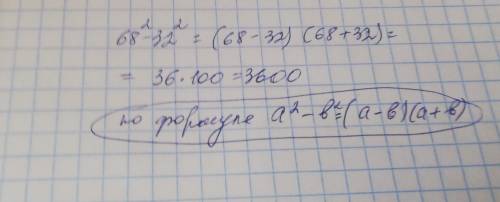 68²-32² = (68-32) (68+32)=
= 36·100=3600
по формуле a²-b²=(a-b)(a+b)